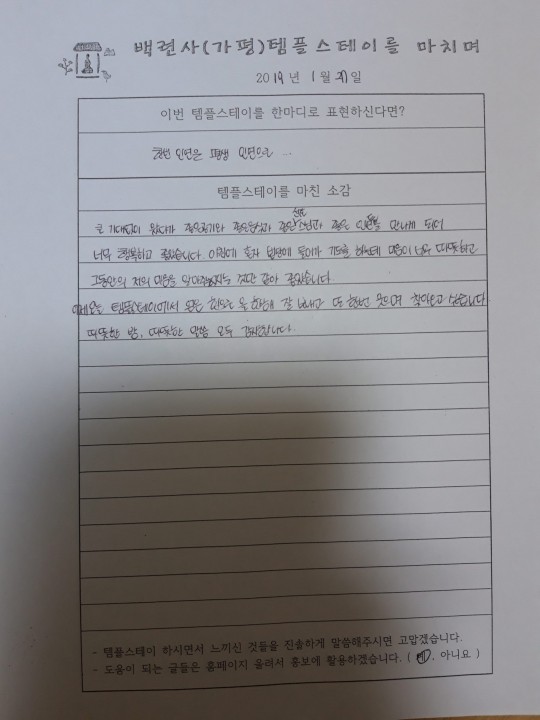 백련사(가평)템플스테이를 마치며
2019년 1월 21일
이번 템플스테이를 한마디로 표현하신다면?
한번 인연은 평생 인연으로 ...
템플스테이를 마친 소감
큰 기대없이 왔다가 좋은공기와 좋은음식과 좋은 스님과 좋은 인연을 만나게 되어
너무 행복하고 좋았습니다. 아침에 혼자 법당에 들어가 기도를 하는데 마음이 너무 따뜻하고
그동안의 저의 마음을 알아주시는 것만 같아 좋았습니다
템플스테이에서 얻은 힘으로 올 한해 잘 보내고 또 한번 웃으며 찾아오고 싶습니다.
따뜻한 밥, 따뜻한 말씀 모두 감사합니다.
- 템플스테이 하시면서 느끼신 것들을 진솔하게 말씀해주시면 고맙겠습니다.
- 도움이 되는 글들은 홈페이지 올려서 홍보에 활용하겠습니다. ( 예, 아니요 )